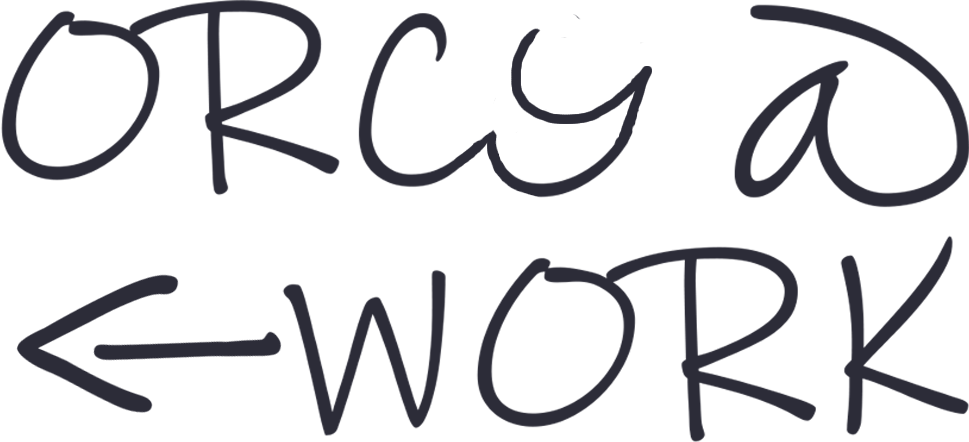 ORCY @
←WORK